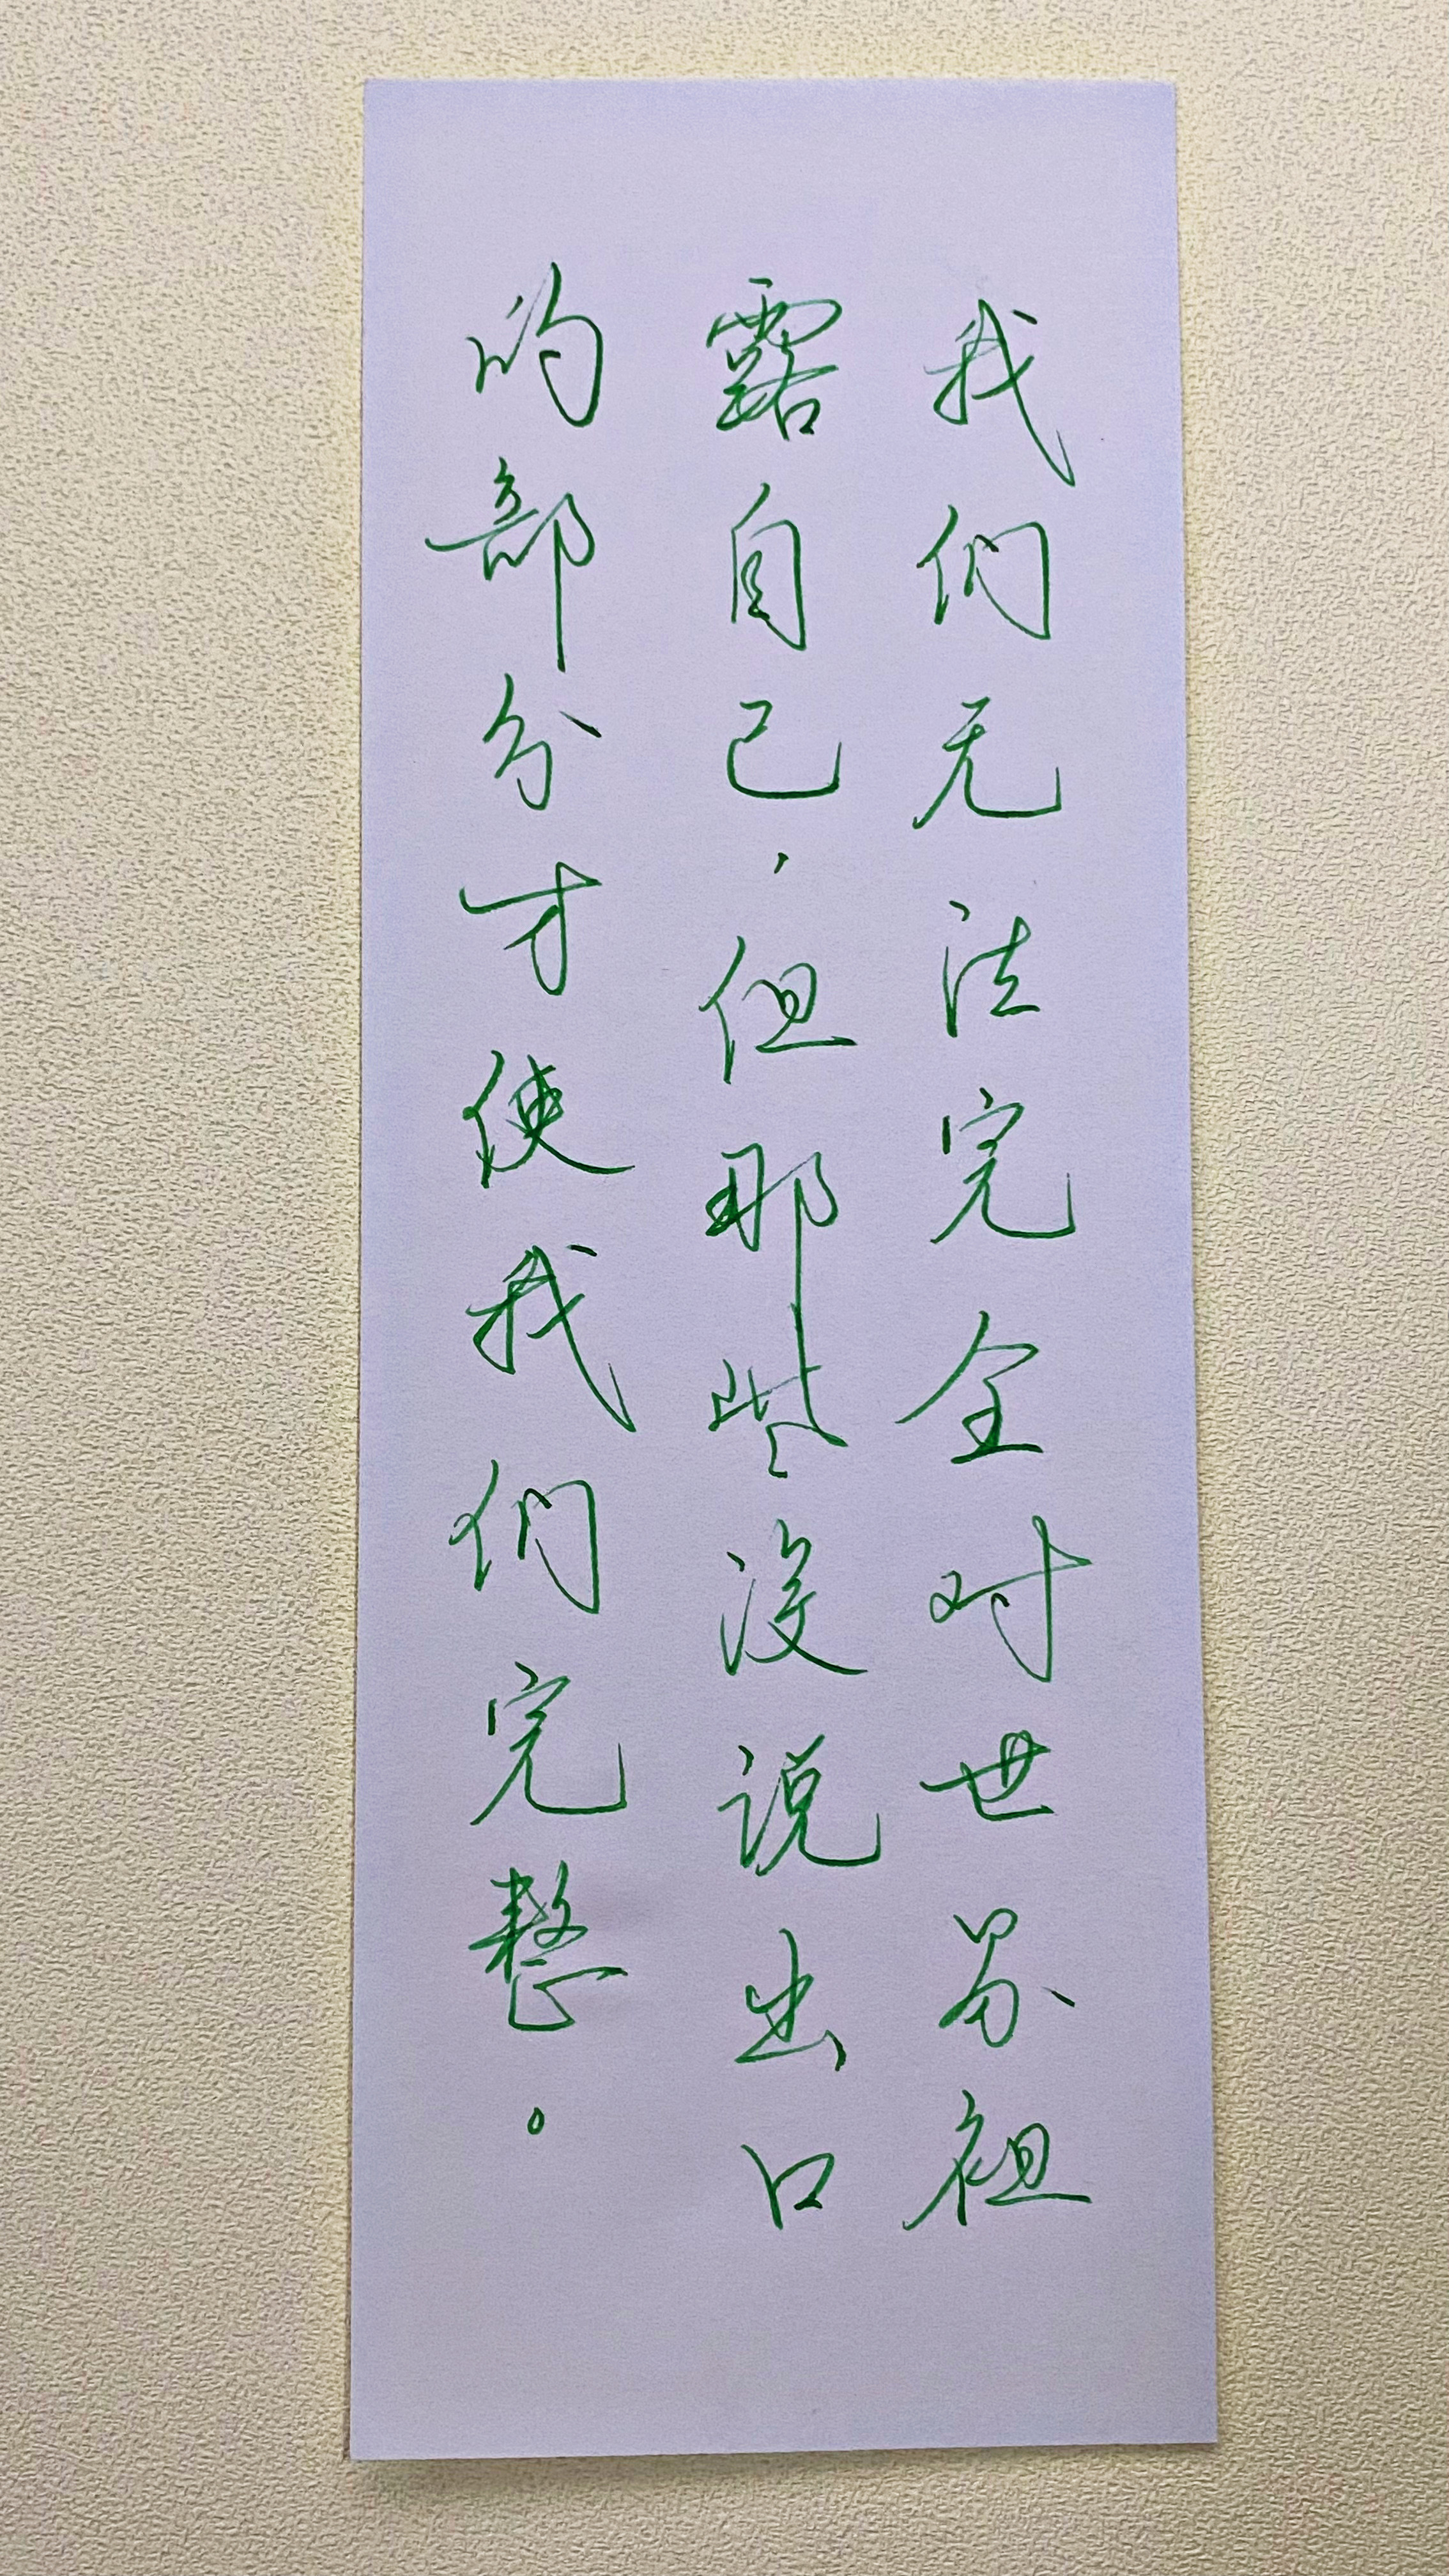 我们无法完全对世界袒
露自己，但那些没说出口
的部分才使我们完整。